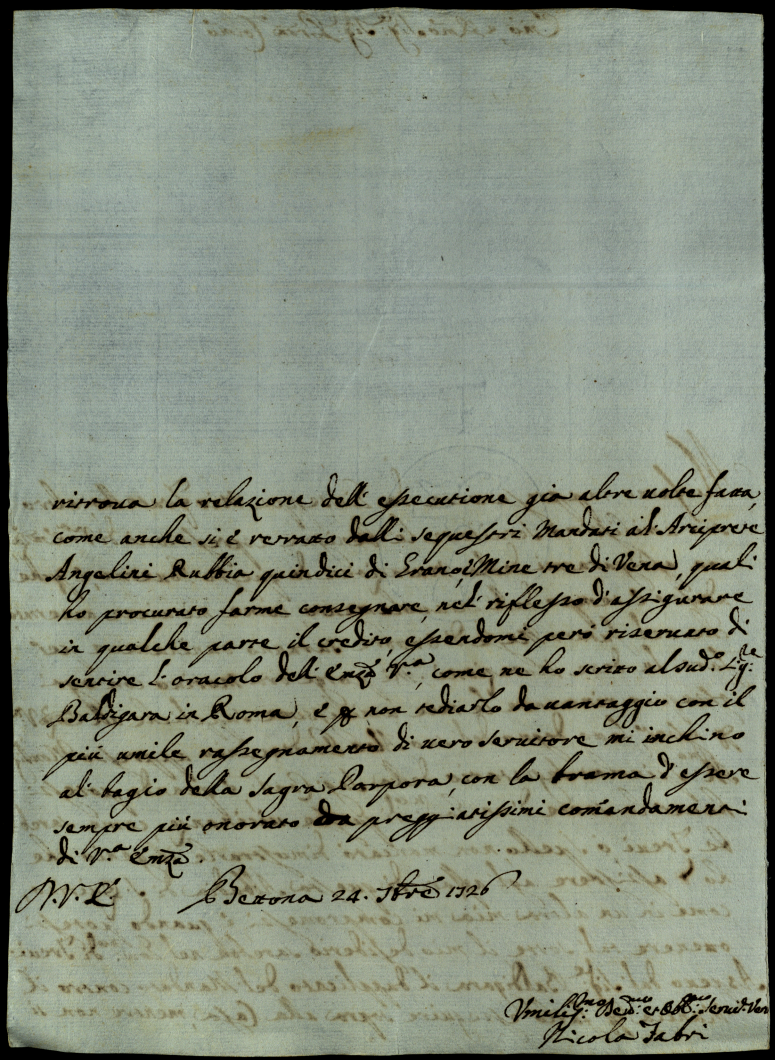 ritrova la relazione dell' essecutione gia altre volte fatta,
come anche si è retratto dalli sequestri Mandati al' Arciprete
Angelini Rubbia quindici di Grano, è Mine tre di Vena, quali
ho procurato farme consegnare, nel' riflesso d'assigurare
in qualche parte il credito, essendomi però riservato di
sentire l'oracolo dell' Emza Va, come ne ho scritto al sud.o Sig.re
Baldigara in Roma, è p non tediarlo davantaggio con il
più umile rassegnamento di vero servitore mi inchino
al' bagio della Sagra Porpora, con la brama d'essere
sempre più onorato da preggiatissimi comandamenti
di V.a Emza
D.V.E. Bettona 24. 7bre 1726
Umiliss.mo Dev.mo et Obb.mo Servid. Ver
Nicola Fabri